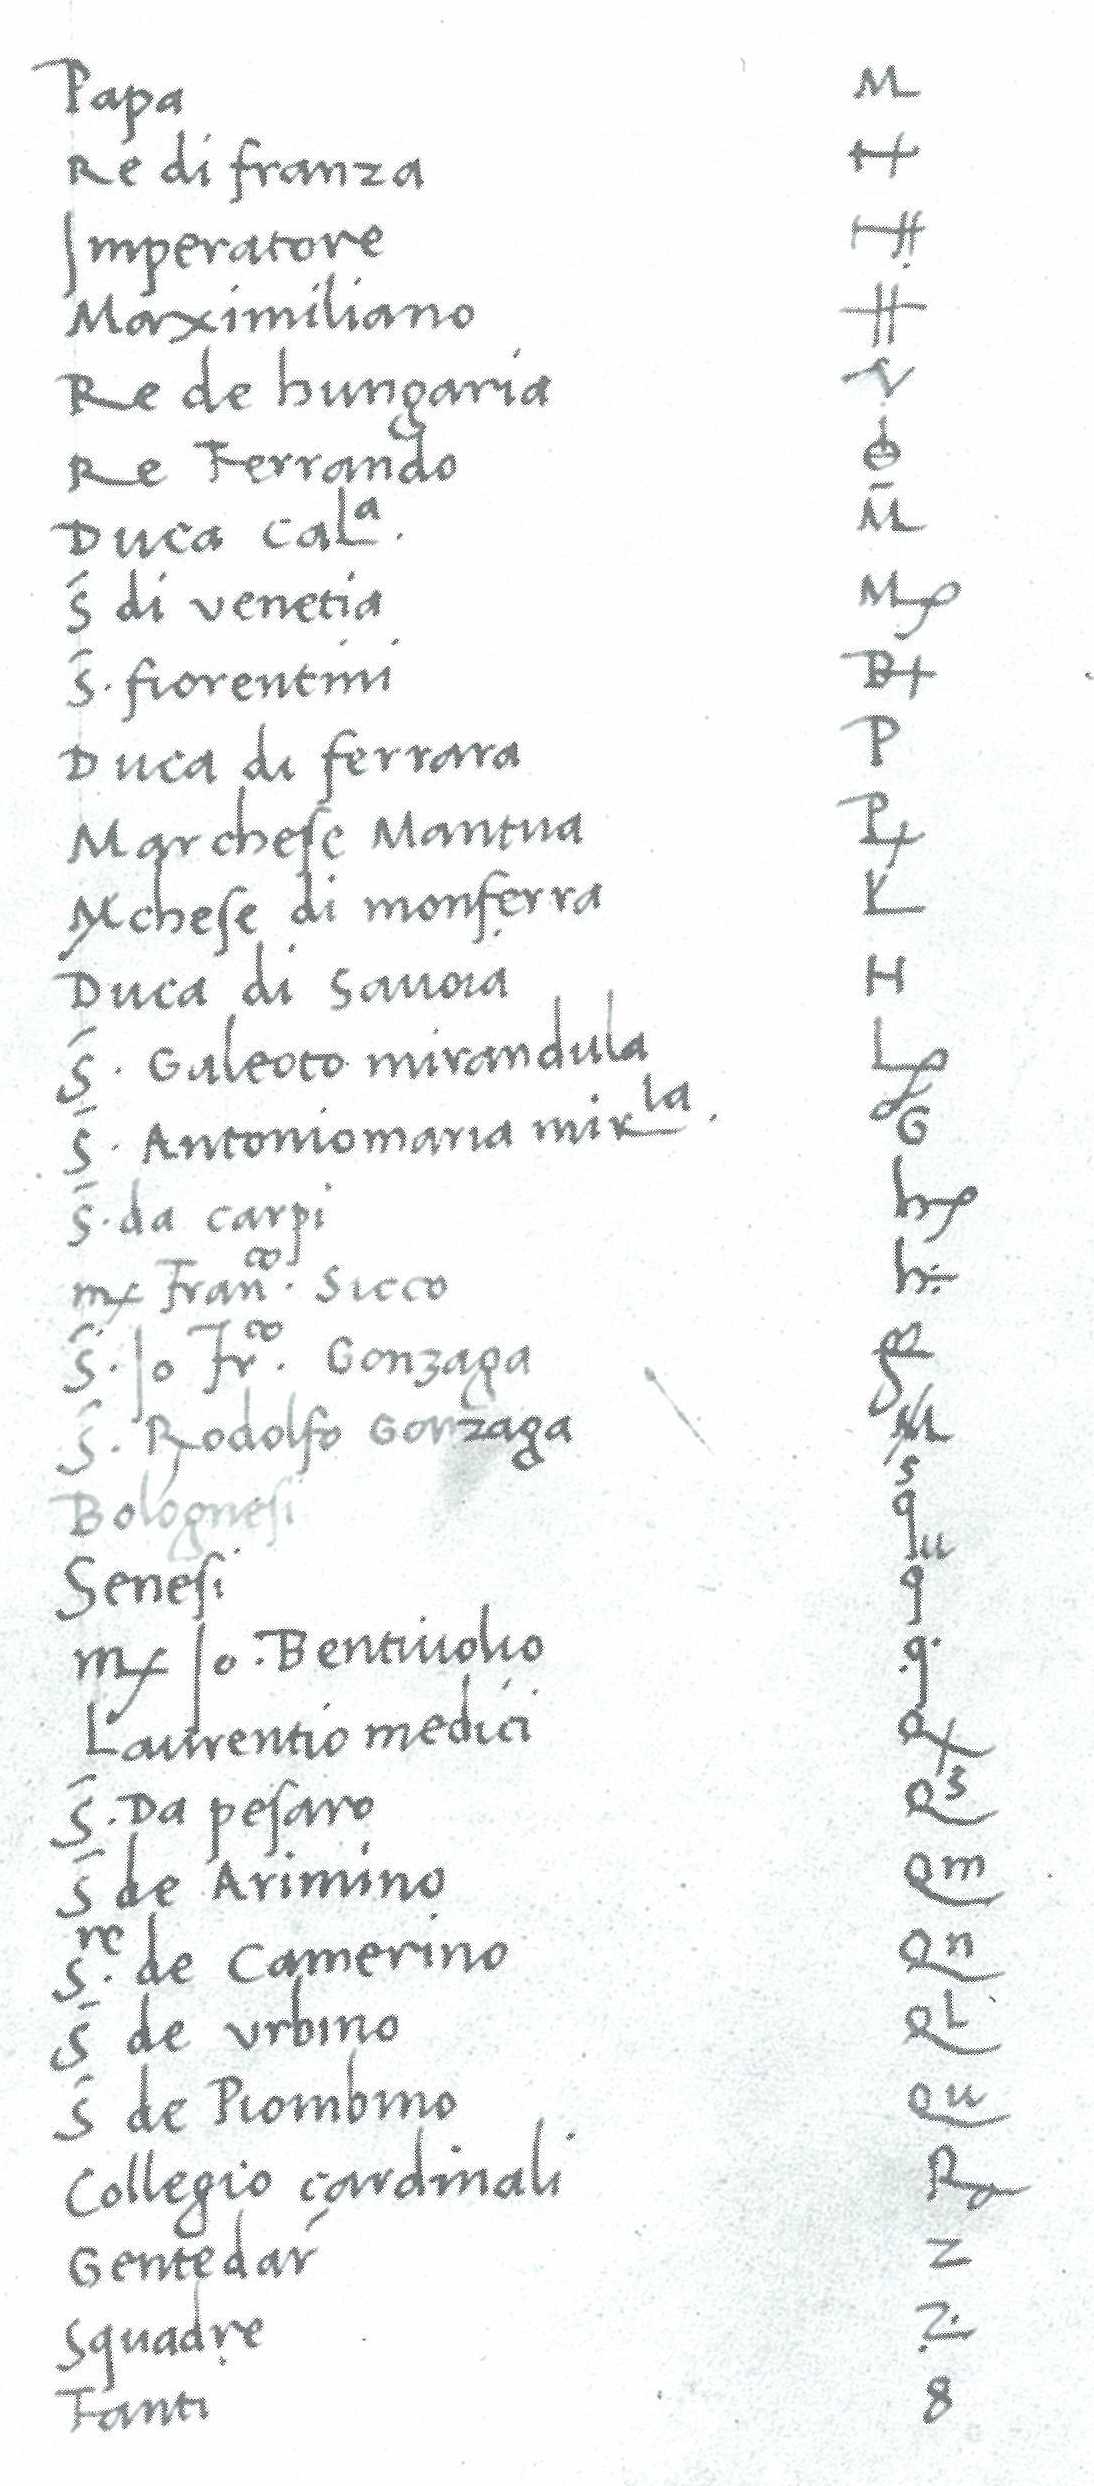 Papa M
Re di franza
Imperatore
Marximiliano
Re de hungaria
Re Ferrando
Duca calª. M̄
S̄ di venetia M
S̄. fiorentini B
Duca di ferrara P
Marchese Mantua P
Mchese di monferra
Duca di Sauoia H
S̄. Galeoto mirandula L
S̄. Antoniomaria mirla. G
S̄. da carpi h
m Franco. Sicco h
S̄. Jo Frco. Gonzaga
S̄. Rodolfo Gonzaga M
Bolognesi qu
Senesi q
m Jo. Bentiuolio q
Laurentio medici
S̄. Da pesaro Qs
S̄ de Arimino Qm
Sre. de Camerino Qn
S̄ de vrbino QL
S̄ de Piombino Qu
Collegio cardinali R
Gentedar z
Squadre z
Fanti 8